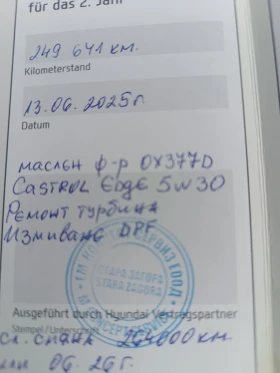 für das 2. Jahr
249 641 км.
Kilometerstand
13.06.2025г.
Datum
маслен ф-р OX377D
Castrol Edge 5W30
Ремонт турбина
Измиване DPF
СТАРА ЗАГОРА
STARA ZAGORA
Ausgeführt durch Hyundai Vertragspartner
Stempel/Unterschrift
сл. смяна 264000 км.
или 06.26г.